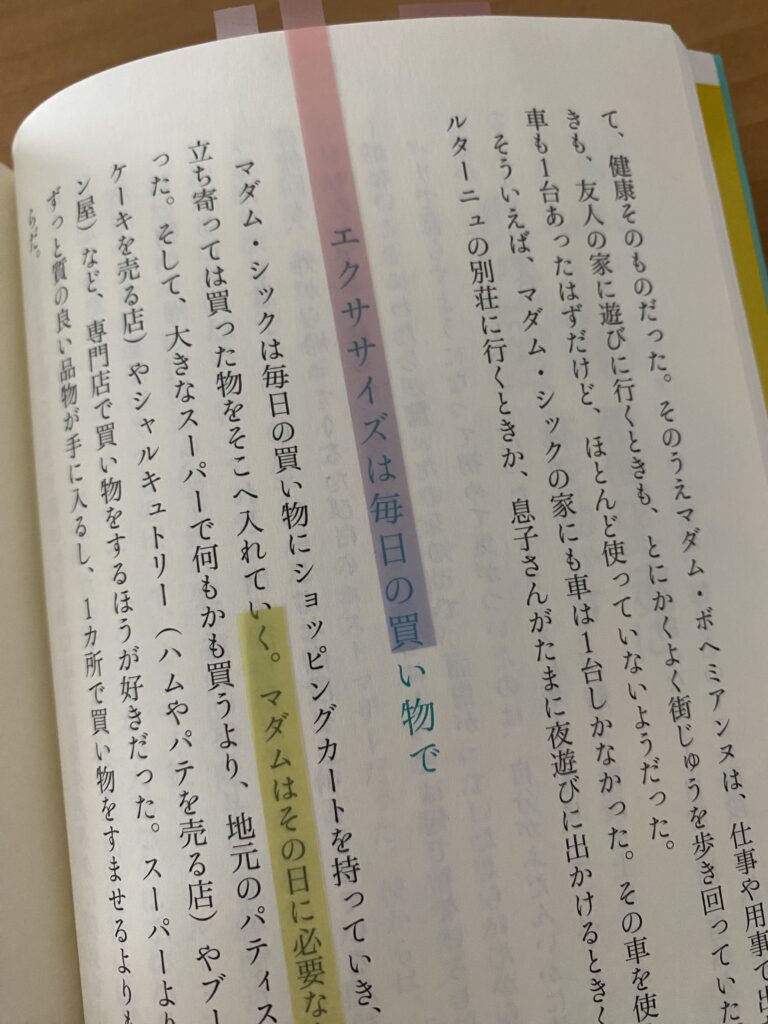 て、健康そのものだった。そのうえマダム・ボヘミアンヌは、仕事や用事で出
きも、友人の家に遊びに行くときも、とにかくよく街じゅうを歩き回っていた
車も1台あったはずだけど、ほとんど使っていないようだった。
そういえば、マダム・シックの家にも車は1台しかなかった。その車を使
ルターニュの別荘に行くときか、息子さんがたまに夜遊びに出かけるときく
エクササイズは毎日の買い物で
マダム・シックは毎日の買い物にショッピングカートを持っていき、
立ち寄っては買った物をそこへ入れていく。マダムはその日に必要な
った。そして、大きなスーパーで何もかも買うより、地元のパティス
ケーキを売る店）やシャルキュトリー（ハムやパテを売る店）やブー
ン屋）など、専門店で買い物をするほうが好きだった。スーパーより
ずっと質の良い品物が手に入るし、1カ所で買い物をすませるよりも
らだ。